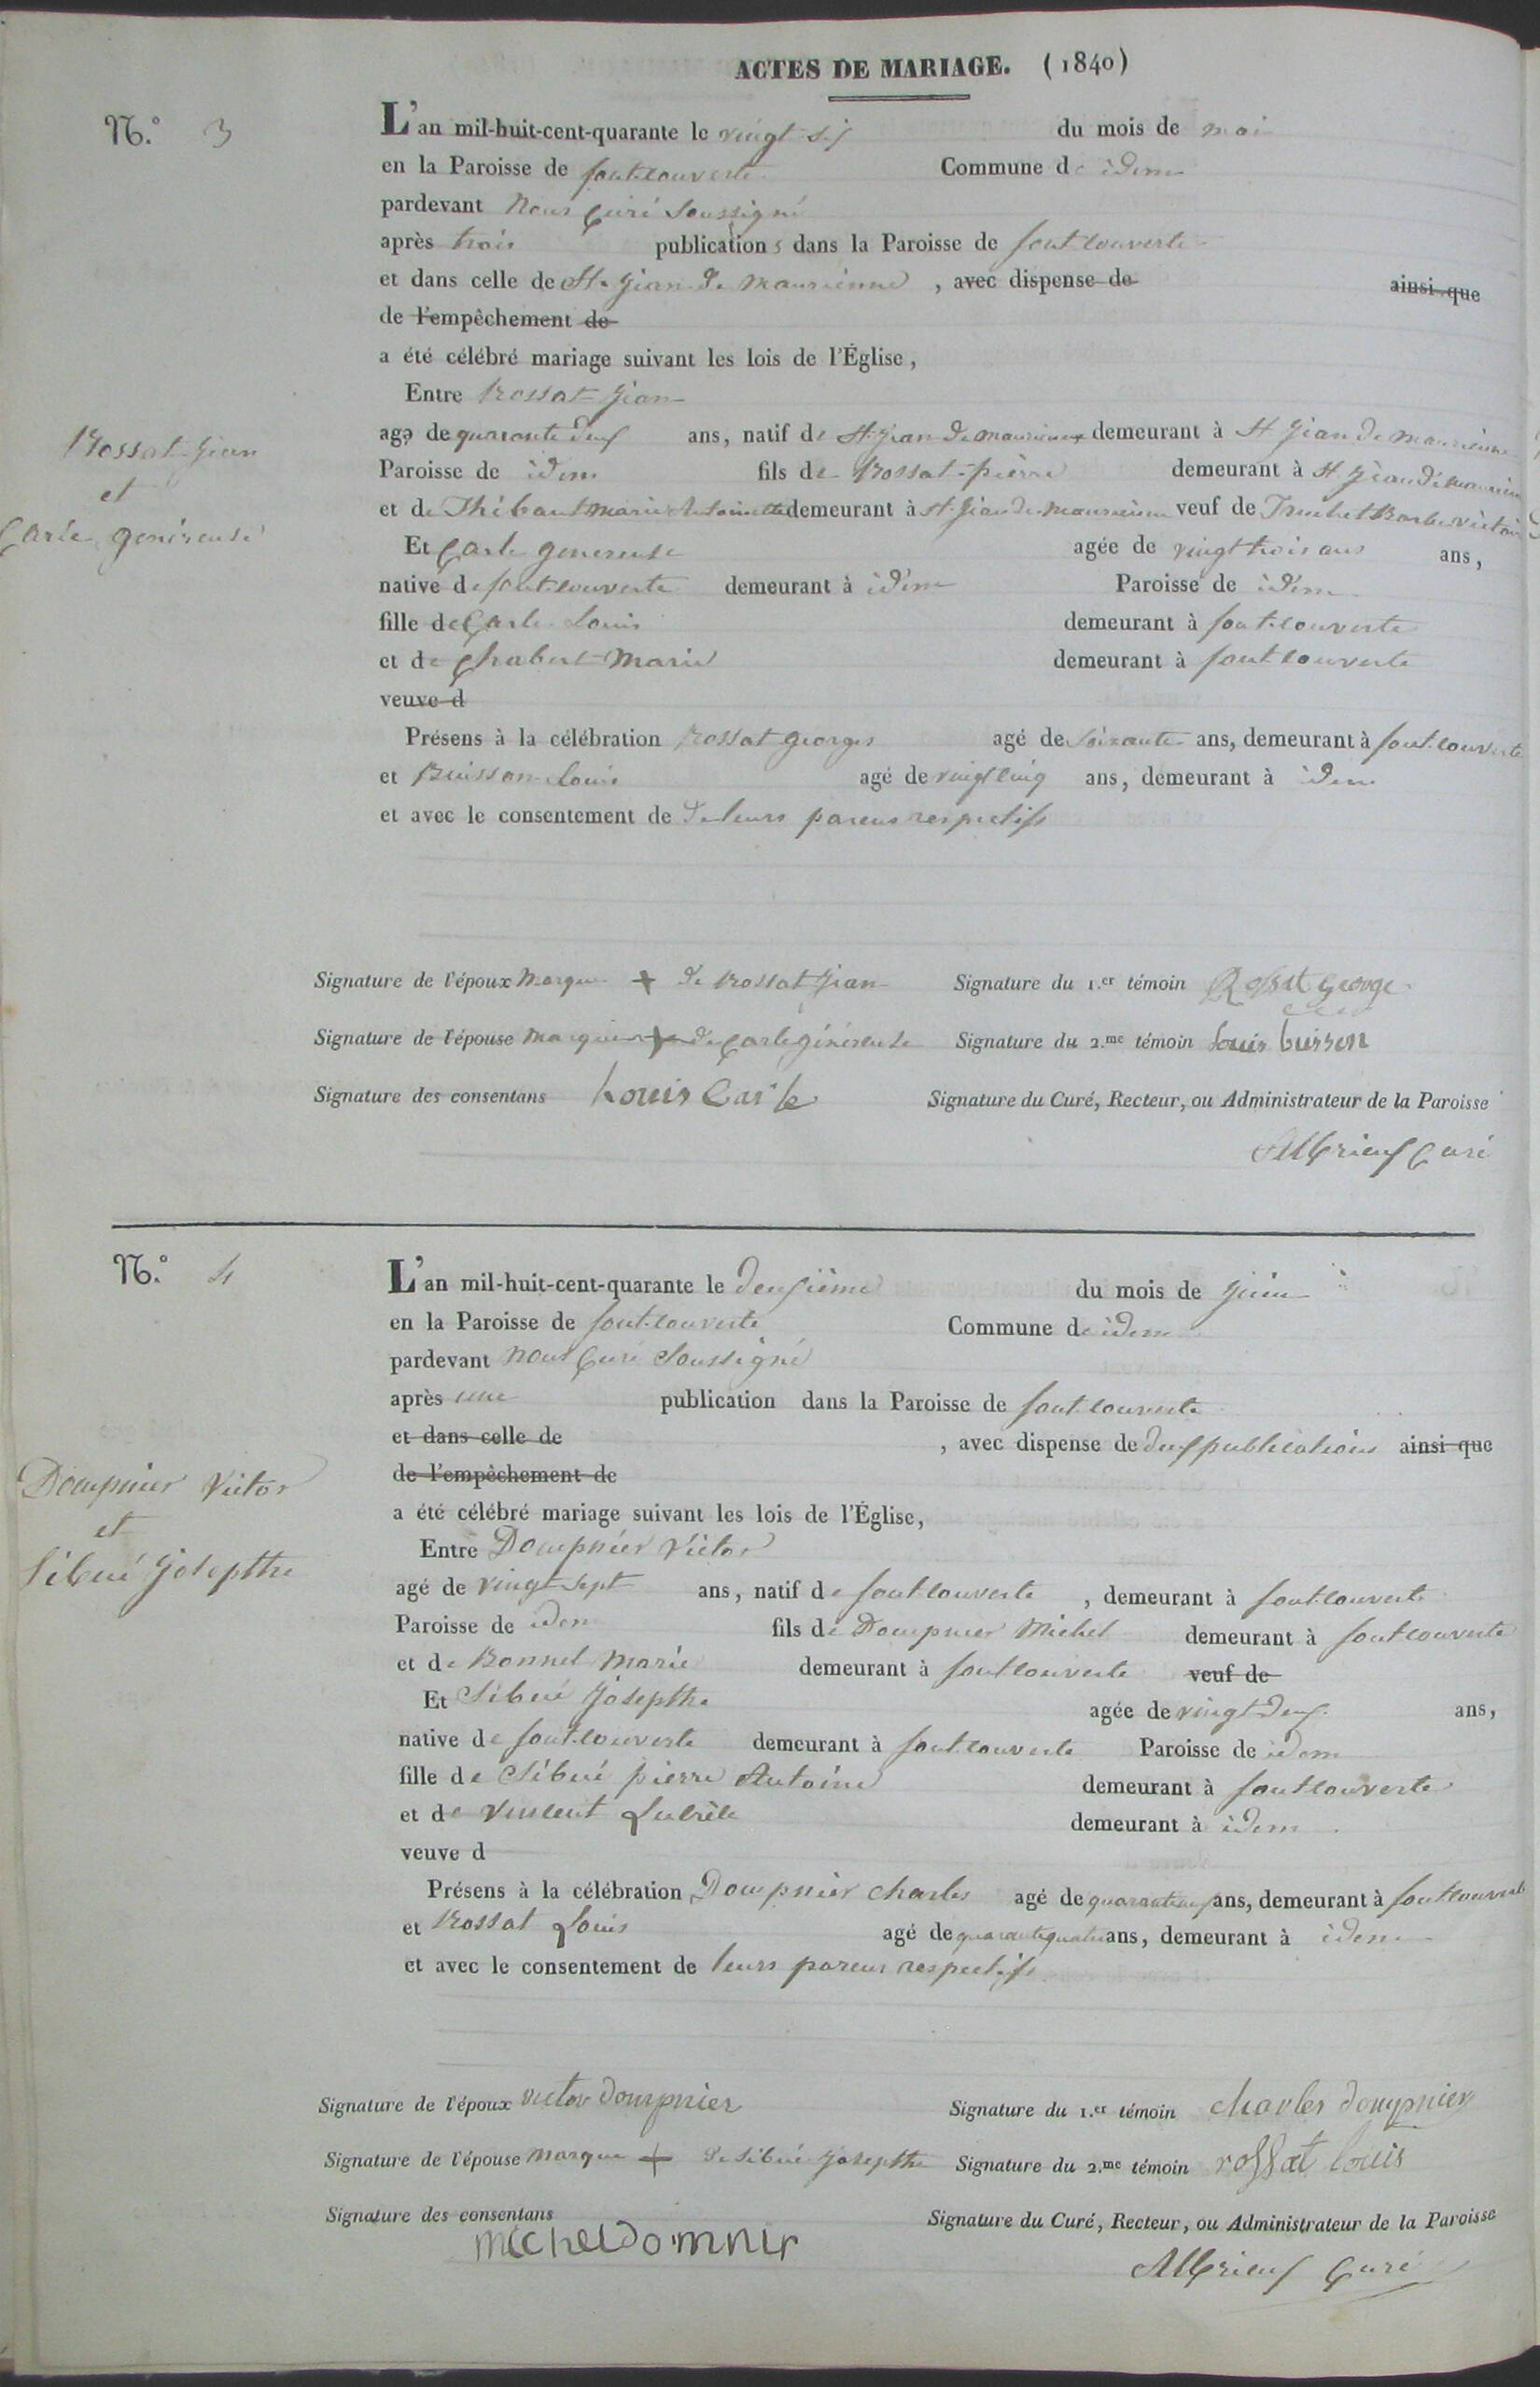 ACTES DE MARIAGE. (1840)
N.° 3
L'an mil-huit-cent-quarante le vingt six du mois de mai
en la Paroisse de fontcouverte Commune de idem
pardevant Nous Curé Soussigné
après trois publications dans la Paroisse de fontcouverte
et dans celle de St Jean de Maurienne , avec dispense de ainsi que
de l'empêchement de
a été célébré mariage suivant les lois de l'Église,
Entre Rossat Jean
agé de quarante deux ans, natif de St Jean de maurienne demeurant à St Jean de maurienne
Rossat Jean
et
Carle genereuse
Paroisse de idem fils de Rossat pierre demeurant à St Jean de maurienne
et de Thibaut marie Antoinette demeurant à St Jean de maurienne veuf de Truchet
Et Carle genereuse agée de vingt trois ans ans,
native de fontcouverte demeurant à idem Paroisse de idem
fille de Carle Louis demeurant à fontcouverte
et de Chabert Marie demeurant à fontcouverte
veuve d
Présens à la célébration Rossat georges agé de soixante ans, demeurant à fontcouverte
et Buisson Louis agé de vingt cinq ans, demeurant à idem
et avec le consentement de de leurs parens respectifs
Signature de l'époux marque + de Rossat Jean Signature du 1.er témoin Rossat george
Signature de l'épouse marque + de Carle généreuse Signature du 2.me témoin Louis buisson
Signature des consentans Louis Carle Signature du Curé, Recteur, ou Administrateur de la Paroisse
Albrieux Curé
N.° 4
L'an mil-huit-cent-quarante le deuxième du mois de Juin
en la Paroisse de fontcouverte Commune de idem
pardevant nous Curé Soussigné
après une publication dans la Paroisse de fontcouverte
et dans celle de , avec dispense de deux publications ainsi que
de l'empêchement de
a été célébré mariage suivant les lois de l'Église,
Dompnier Victor
et
Sibué Josepthe
Entre Dompnier Victor
agé de vingt sept ans, natif de fontcouverte , demeurant à fontcouverte
Paroisse de idem fils de Dompnier Michel demeurant à fontcouverte
et de Bonnel Marie demeurant à fontcouverte veuf de
Et Sibué Josepthe agée de vingt deux ans,
native de fontcouverte demeurant à fontcouverte Paroisse de idem
fille de Sibué pierre Antoine demeurant à fontcouverte
et de Vincent demeurant à idem
veuve d
Présens à la célébration Dompnier Charles agé de ans, demeurant à fontcouverte
et Rossat Louis agé de quarante quatre ans, demeurant à idem
et avec le consentement de leurs parens respectifs
Signature de l'époux victor dompnier Signature du 1.er témoin charles dompnier
Signature de l'épouse marque + de Sibué Josepthe Signature du 2.me témoin rossat louis
Signature des consentans Signature du Curé, Recteur, ou Administrateur de la Paroisse
michel domnir
Albrieux Curé